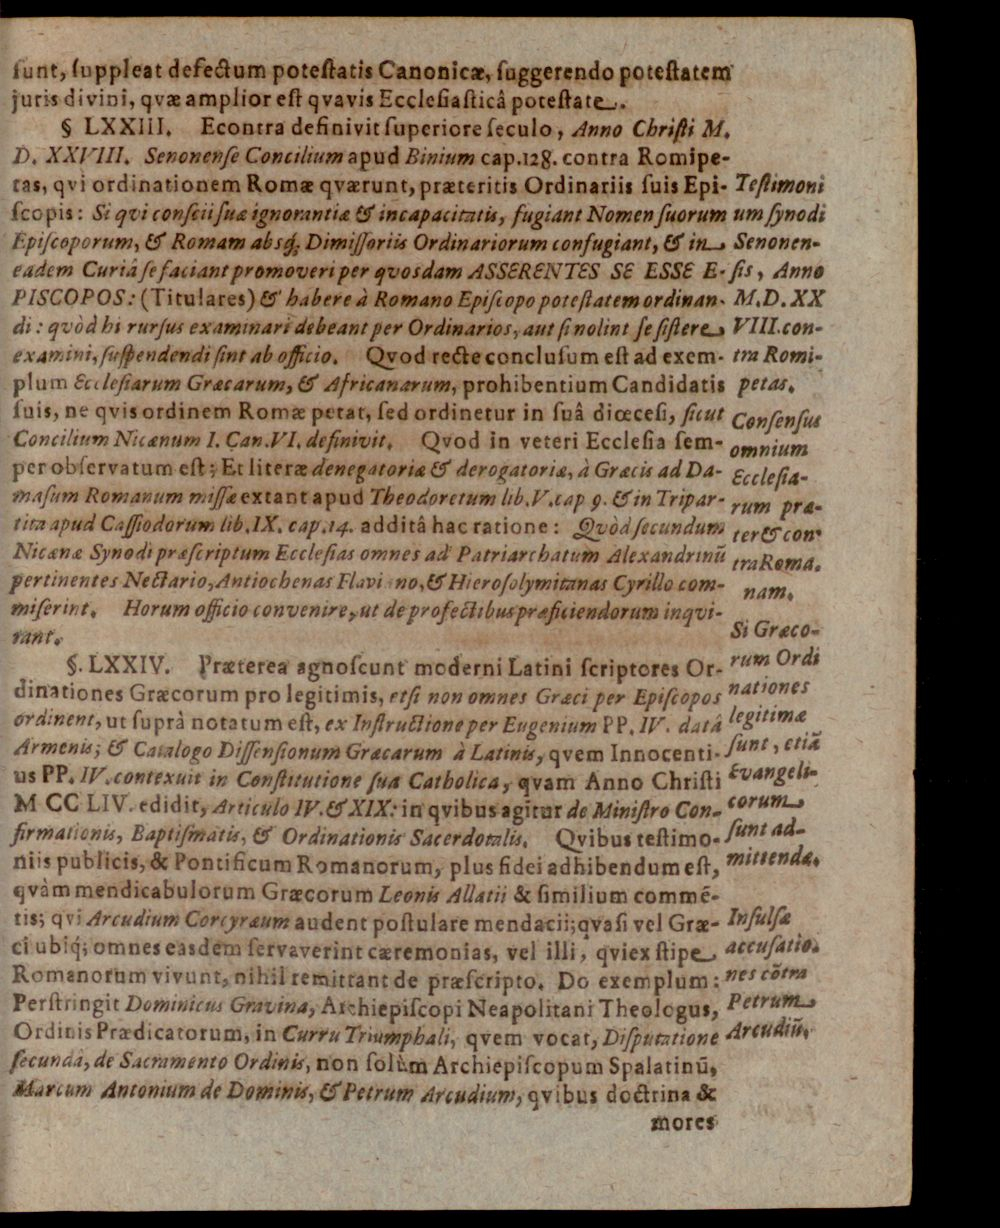 sunt, suppleat defectum potestatis Canonicæ, suggerendo potestatem
juris divini, qvæ amplior est qvavis Ecclesiasticâ potestate.
§ LXXIII. Econtra definivit superiore seculo, Anno Christi M.
D. XXVIII. Senonense Concilium apud Binium cap.128. contra Romipe-
tas, qvi ordinationem Romæ qværunt, præteritis Ordinariis suis Epi-
scopis: Si qvi conscii suæ ignorantiæ & incapacitatis, fugiant Nomen suorum
Episcoporum, & Romam absq; Dimissoriis Ordinariorum confugiant, & in
eadem Curiâ se faciant promoveri per qvosdam ASSERENTES SE ESSE E-
PISCOPOS: (Titulares) & habere à Romano Episcopo potestatem ordinan-
di: qvòd hi rursus examinari debeant per Ordinarios, aut si nolint se sistere
examini, suspendendi sint ab officio. Qvod recte conclusum est ad exem-
plum Ecclesiarum Græcarum, & Africanarum, prohibentium Candidatis
suis, ne qvis ordinem Romæ petat, sed ordinetur in suâ diœcesi, sicut
Concilium Nicænum I. Can.VI. definivit. Qvod in veteri Ecclesia sem-
per observatum est; Et literæ denegatoriæ & derogatoriæ, à Græcis ad Da-
masum Romanum missæ extant apud Theodoretum lib.V.cap 9. & in Tripar-
tita apud Cassiodorum lib.IX. cap.14. additâ hac ratione: Qvòd secundum
Nicænæ Synodi præscriptum Ecclesias omnes ad Patriarchatum Alexandrinū
pertinentes Nectario, Antiochenas Flavi no, & Hierosolymitanas Cyrillo com-
miserint. Horum officio convenire, ut de profectibus præficiendorum inqvi-
rant.
§. LXXIV. Præterea agnoscunt moderni Latini scriptores Or-
dinationes Græcorum pro legitimis, etsi non omnes Græci per Episcopos
ordinent, ut suprà notatum est, ex Instructione per Eugenium PP. IV. datâ
Armenis; & Catalogo Dissensionum Græcarum à Latinis, qvem Innocenti-
us PP. IV. contexuit in Constitutione sua Catholica, qvam Anno Christi
M CC LIV. edidit, Articulo IV. & XIX: in qvibus agitur de Ministro Con-
firmationis, Baptismatis, & Ordinationis Sacerdotalis. Qvibus testimo-
niis publicis, & Pontificum Romanorum, plus fidei adhibendum est,
qvàm mendicabulorum Græcorum Leonis Allatii & similium commē-
tis; qvi Arcudium Corcyræum audent postulare mendacii; qvasi vel Græ-
ci ubiq; omnes easdem servaverint cæremonias, vel illi, qvi ex stipe
Romanorum vivunt, nihil remittant de præscripto. Do exemplum:
Perstringit Dominicus Gravina, Archiepiscopi Neapolitani Theologus,
Ordinis Prædicatorum, in Curru Triumphali, qvem vocat, Disputatione
secundâ, de Sacramento Ordinis, non solùm Archiepiscopum Spalatinū,
Marcum Antonium de Dominis, & Petrum Arcudium, qvibus doctrina &
mores
Testimoni
um synodi
Senonen-
sis, Anno
M.D.XX
VIII.con-
tra Romi-
petas.
Consensus
omnium
Ecclesia-
rum præ-
ter & con-
tra Roma.
nam.
Si Græco-
rum Ordi
nationes
legitimæ
sunt, etiā
Evangeli-
corum
sunt ad-
mittendæ.
Insulsæ
accusatio-
nes cōtra
Petrum
Arcudiū.